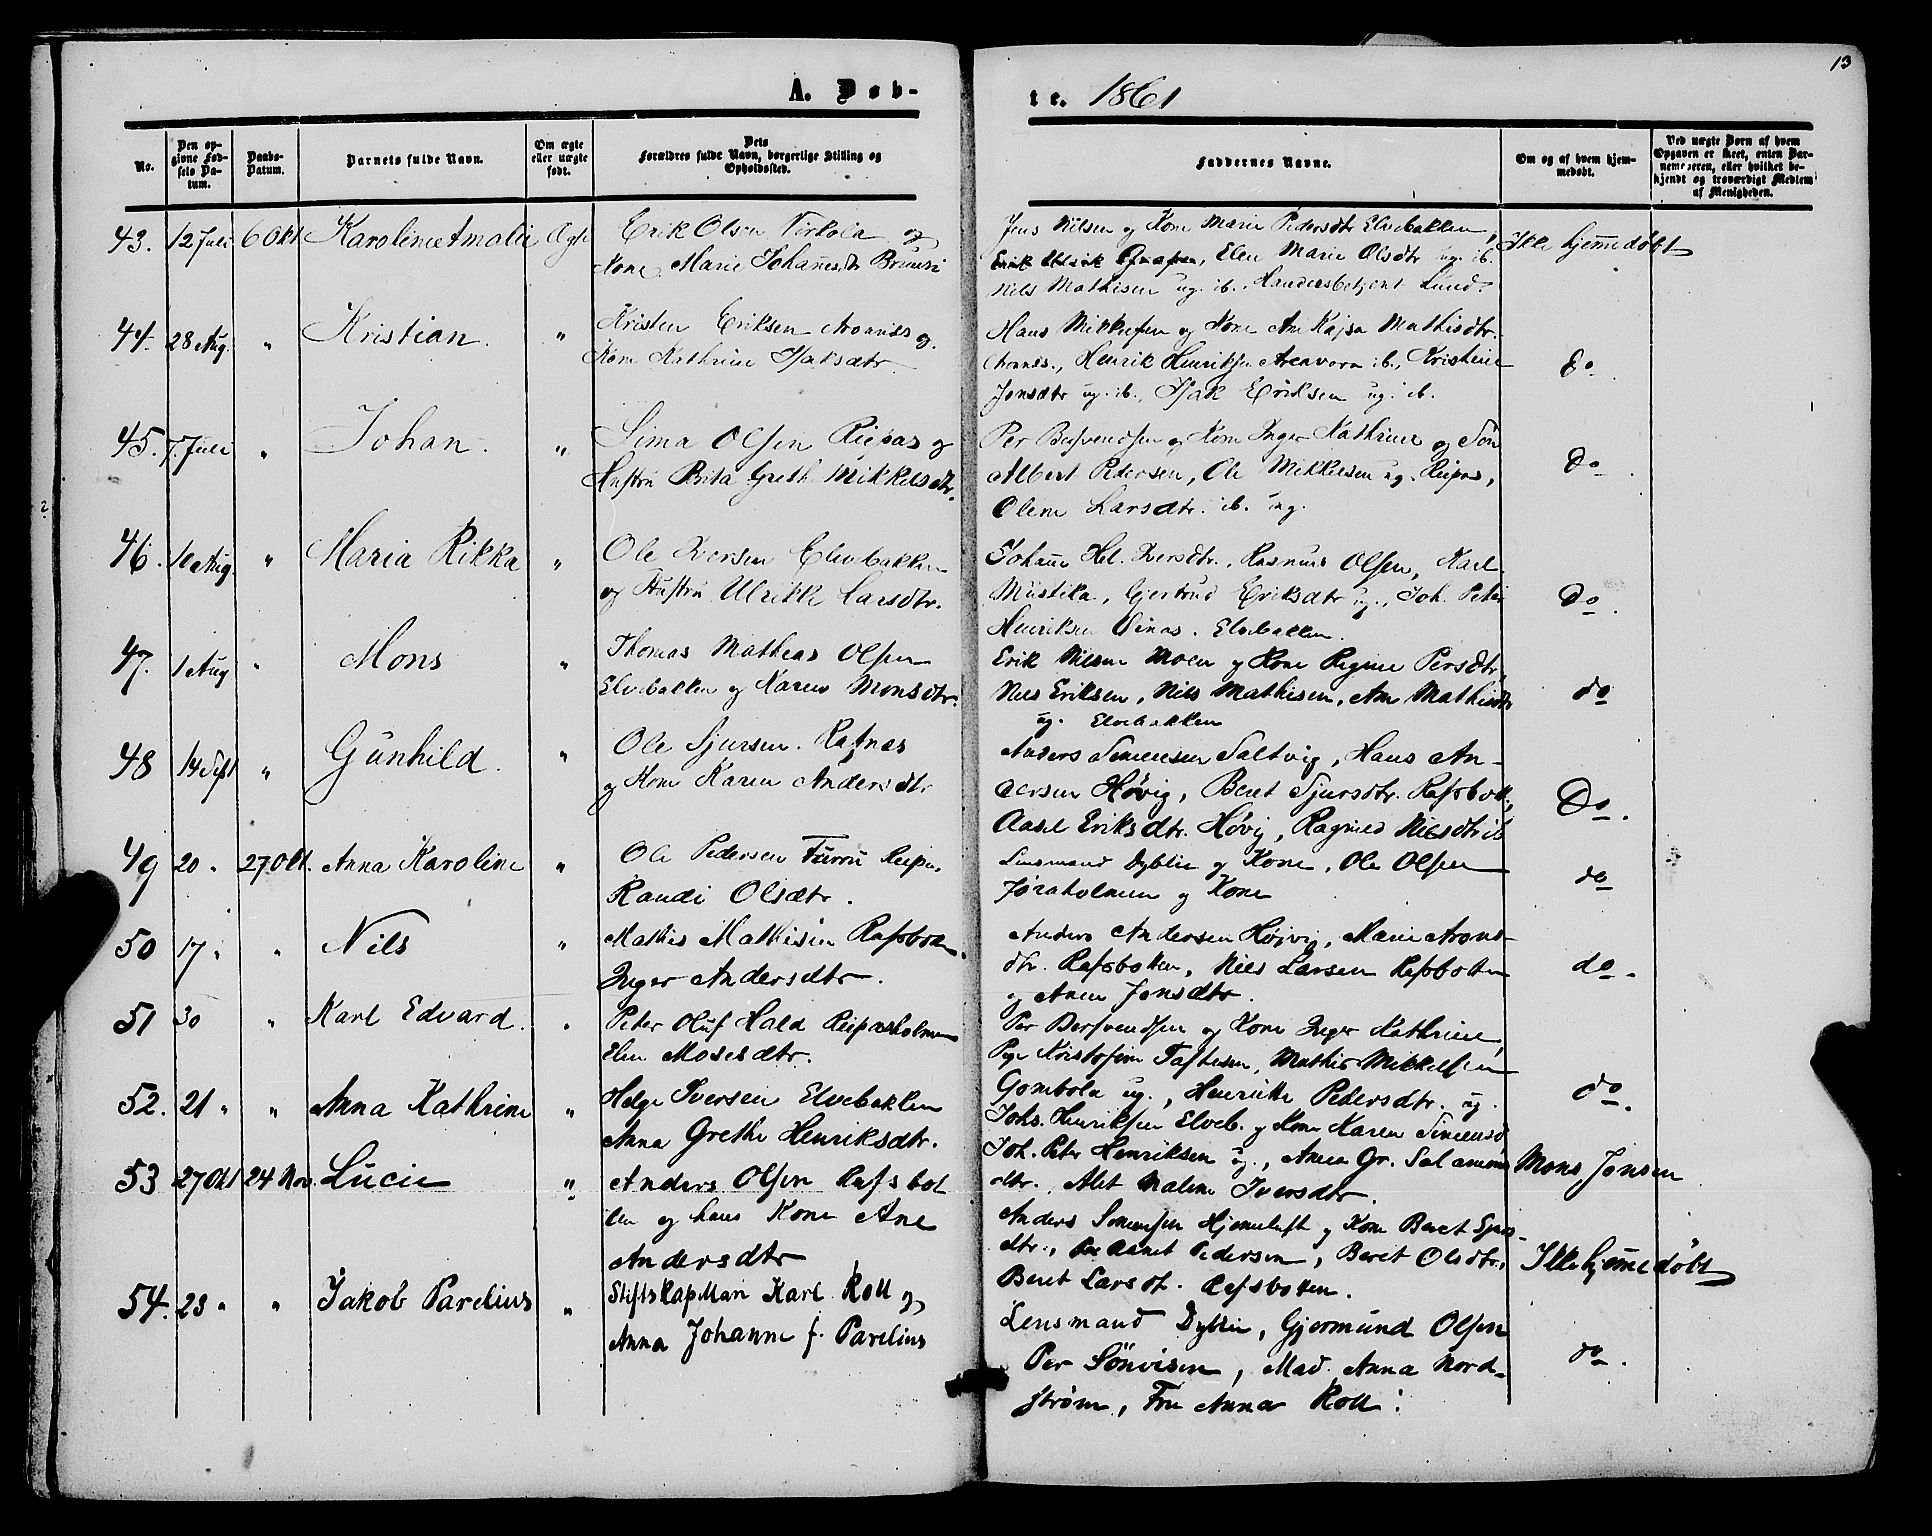 13
A. Døb-
te. 1861
No.
Den opgivne Fødsels Datum.
Daabs-Datum.
Barnets fulde Navn.
Om ægte eller uægte født.
Dets Forældres fulde Navn, borgerlige Stilling og Opholdssted.
Faddernes Navne.
Om og af hvem hjemmedøbt.
Ved uægte Børn af hvem Opgaven er skeet, enten Barnemoderen, eller hvilket bekjendt og troværdigt Medlem af Menigheden.
43. 12 Juli 6 Okt. Karoline Amalie Ægte
Erik Olsen Virkola og
Kone Marie Johannesdtr
Jens Nilsen og Kone Marie Pedersdtr Elvebakken,
Elen Marie Olsdtr ug. ib.
Nils Mathisen ug. ib. Handelsbetjent Lund.
Ikke hjemmedøbt
44. 28 Aug. " Kristian. "
Kristen Eriksen og
Kone Kathrine Isaksdtr.
Hans Mikkelsen og Kone An Kajsa Mathisdtr.
Henrik Henriksen ib., Kristine
Jonsdtr ug. ib., Isak Eriksen ug. ib.
Do
45. 7. Juli " Johan. "
Sima Olsen Reipas og
Hustru Brita Greth Mikkelsdtr.
Per Bersvendsen og Kone Inger Kathrine og Søn
Albert Pedersen, Ole Mikkelsen ug. Reipas,
Olene Larsdtr. ib. ug.
Do
46. 10 Aug. " Maria Rikka "
Ole Iversen Elvebakken
og Hustru Ulrikke Larsdtr.
Johanne Hel. Iversdtr., Rasmus Olsen, Karl
Mustika, Gjertrud Eriksdtr ug., Joh. Peter
Henriksen Elvebakken.
Do.
47. 1 Aug " Mons "
Thomas Mathias Olsen
Elvebakken og Karen Monsdtr.
Erik Nilsen Moen og Kone Regine Persdtr,
Niels Eriksen, Nils Mathisen, An Mathisdtr
ug. Elvebakken
do
48 14 Sept " Gunhild. "
Ole Sjursen. Rafnas
og Kone Karen Andersdtr
Anders Simensen Saltvig, Hans An-
dersen Høvig, Beret Sjursdtr. Rafsbotn,
Aasel Eriksdtr. Høvig, Ragnild Nilsdtr ib
Do.
49 20 " 27 Okt. Anna Karoline "
Ole Pedersen Furru Reipas,
Randi Olsdtr.
Lensmand Dyblie og Kone, Ole Olsen
Jøraholmen og Kone
do
50 17 " " Nils "
Mathis Mathisen Rafsbotn
Inger Andersdtr.
Anders Andersen Højvig, Marie Arons-
dtr. Rafsbotten, Niels Larsen Rafsbotten
og Anne Jonsdtr.
do.
51 30 " Karl Edvard. "
Peter Oluf Hald Reipasholmen
Elen Mosesdtr.
Per Bersvendsen og Kone Inger Kathrine,
Pige Kristofine Taftesen, Mathis Mikkelsen
Gombola ug., Henrikke Pedersdtr. ug.
do.
52. 21 " " Anna Kathrine "
Helge Iversen Elvebakken
Anna Grethe Henriksdtr.
Johs. Henriksen Elveb. og Kone Karen Simensd
Joh. Peter Henriksen ug., Anna Gr. Salamons
dtr. Alet Maline Iversdtr.
53 27 Okt 24 Nov. Lucie "
Anders Olsen Rafsbot
ten og hans Kone Ane
Andersdtr
Anders Simensen Hjemeluft og Kone Beret
dtr., Pedersen, Beret Olsdtr.,
Beret Larsdt. Rafsbotten.
Mons Jonsen
54. 23 " " Jakob Parelius "
Stiftskapellan Karl Roll og
Anna Johanne f. Parelius
Lensmand Dyblie, Gjermund Olsen
Per Sønvisen, Mad. Anna Nord-
strøm, Fru Anna Roll.
Ikke hjemmedøbt
do.